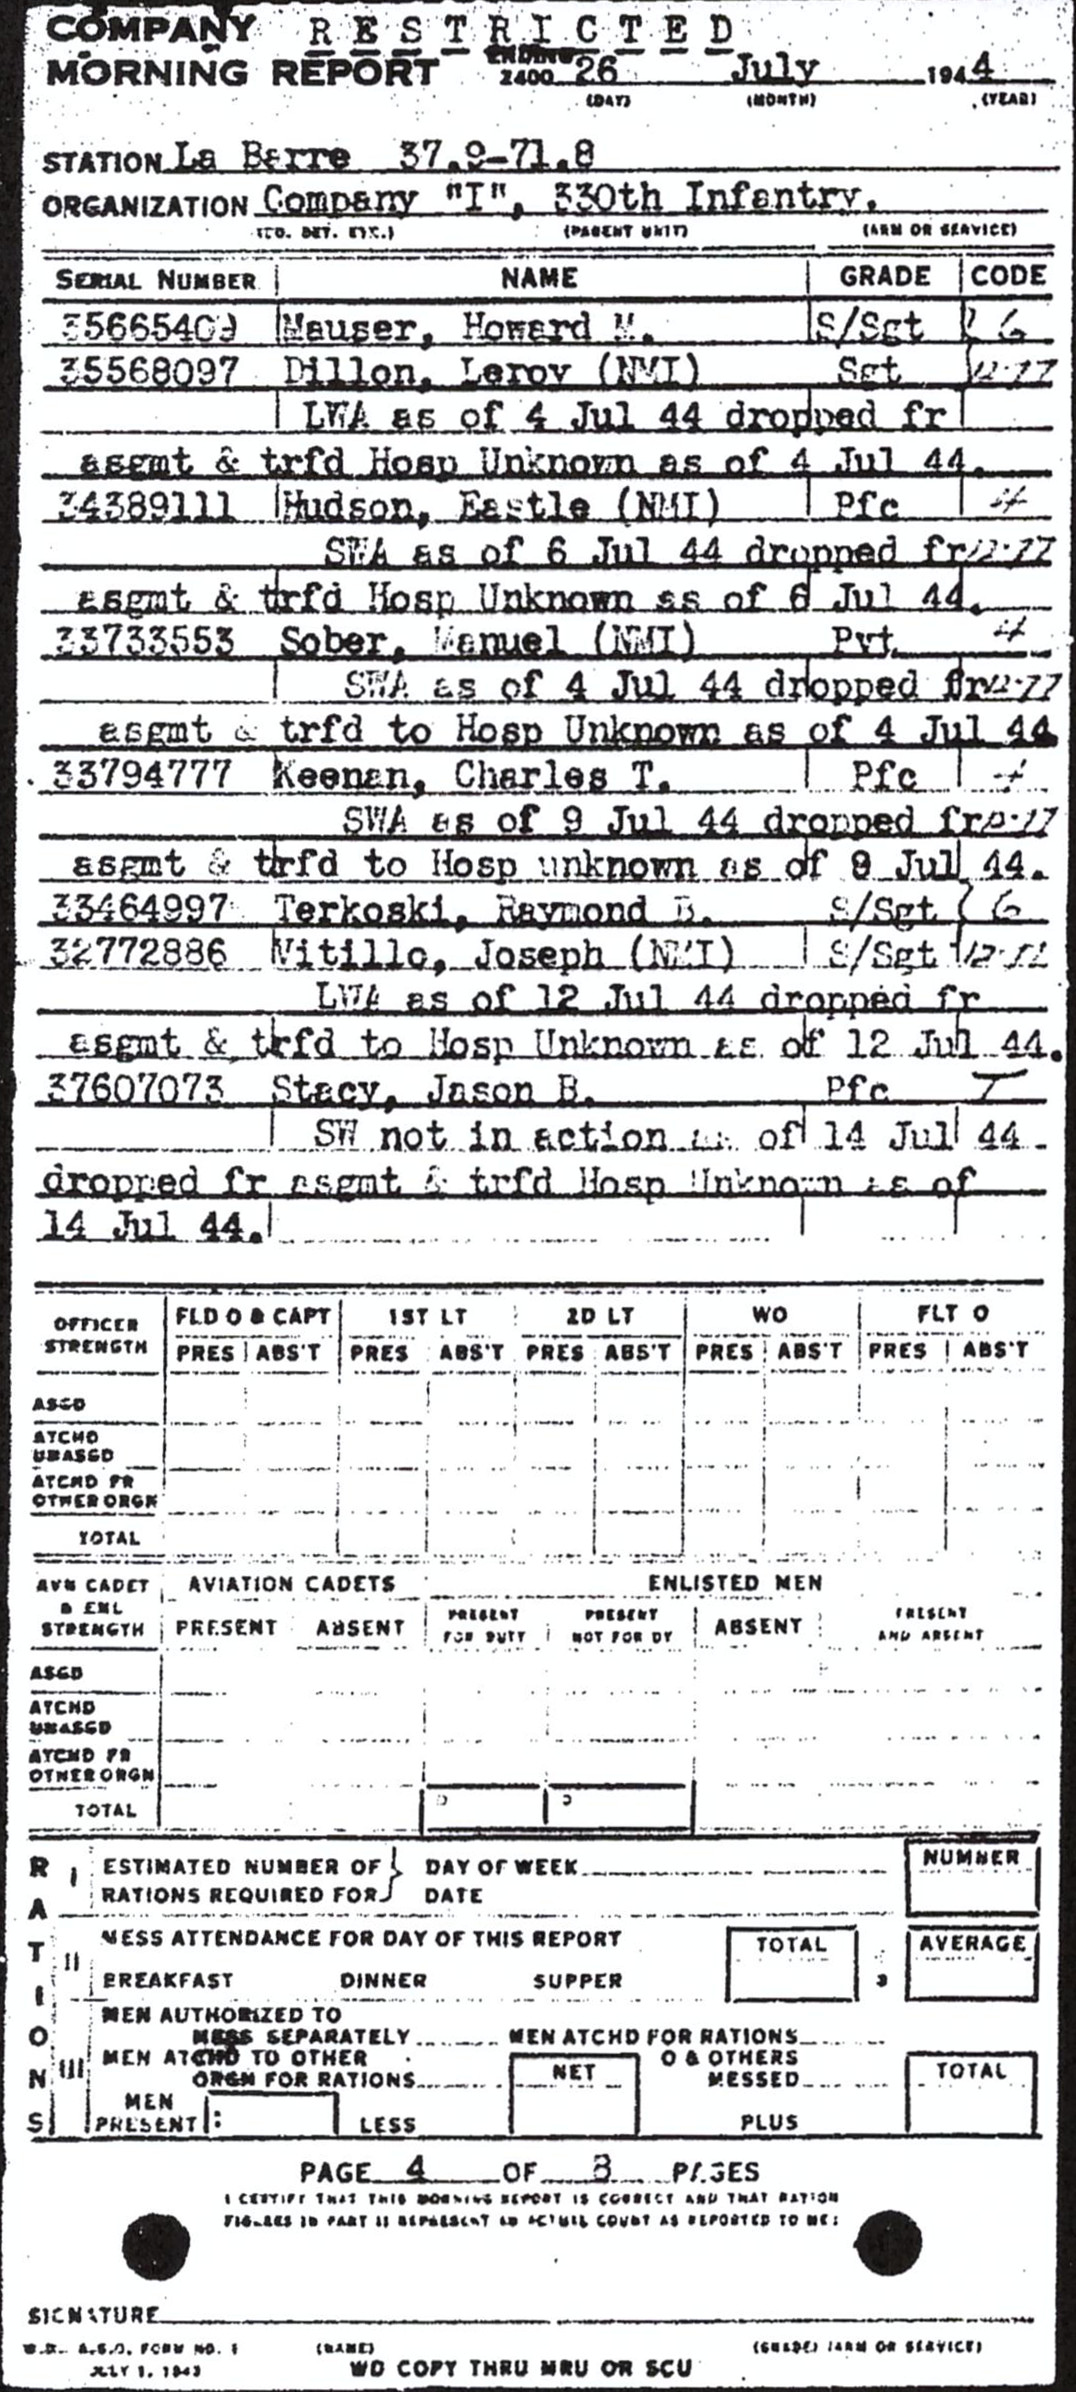 COMPANY RESTRICTED
MORNING REPORT ENDING 2400 26 July 1944
(DAY) (MONTH) (YEAR)
STATION La Barre 37.9-71.8
ORGANIZATION Company "I", 330th Infantry.
(CO. DET. ETC.) (PARENT UNIT) (ARM OR SERVICE)
SERIAL NUMBER NAME GRADE CODE
35665409 Mauser, Howard M. S/Sgt 6
35568097 Dillon, Leroy (NMI) Sgt 12-77
LWA as of 4 Jul 44 dropped fr
asgmt & trfd Hosp Unknown as of 4 Jul 44.
34389111 Hudson, Eastle (NMI) Pfc 4
SWA as of 6 Jul 44 dropped fr 12-77
asgmt & trfd Hosp Unknown as of 6 Jul 44.
33733553 Sober, Manuel (NMI) Pvt 4
SWA as of 4 Jul 44 dropped fr 12-77
asgmt & trfd to Hosp Unknown as of 4 Jul 44
33794777 Keenan, Charles T. Pfc 4
SWA as of 9 Jul 44 dropped fr 12-77
asgmt & trfd to Hosp unknown as of 9 Jul 44.
33464997 Terkoski, Raymond B. S/Sgt 6
32772886 Vitillo, Joseph (NMI) S/Sgt
LWA as of 12 Jul 44 dropped fr
asgmt & trfd to Hosp Unknown as of 12 Jul 44.
37607073 Stacy, Jason B. Pfc
SW not in action as of 14 Jul 44
dropped fr asgmt & trfd Hosp Unknown as of
14 Jul 44.
OFFICER STRENGTH FLD O & CAPT 1ST LT 2D LT WO FLT O
PRES ABS'T PRES ABS'T PRES ABS'T PRES ABS'T PRES ABS'T
ASGD
ATCHD
UNASGD
ATCHD FR
OTHER ORGN
TOTAL
AVN CADET & ENL STRENGTH AVIATION CADETS ENLISTED MEN
PRESENT ABSENT PRESENT FOR DUTY PRESENT NOT FOR DY ABSENT PRESENT AND ABSENT
ASGD
ATCHD
UNASGD
ATCHD FR
OTHER ORGN
TOTAL
RATIONS
I ESTIMATED NUMBER OF DAY OF WEEK NUMBER
RATIONS REQUIRED FOR DATE
II MESS ATTENDANCE FOR DAY OF THIS REPORT TOTAL AVERAGE
BREAKFAST DINNER SUPPER
MEN AUTHORIZED TO
MESS SEPARATELY MEN ATCHD FOR RATIONS
III MEN ATCHD TO OTHER NET O & OTHERS TOTAL
ORGN FOR RATIONS MESSED
MEN
PRESENT : LESS PLUS
PAGE 4 OF 8 PAGES
I CERTIFY THAT THIS MORNING REPORT IS CORRECT AND THAT RATION
FIGURES IN PART II REPRESENT AN ACTUAL COUNT AS REPORTED TO ME:
SIGNATURE
W.D., A.G.O. FORM NO. 1 (NAME) (GRADE) (ARM OR SERVICE)
JULY 1, 1943 WD COPY THRU MRU OR SCU